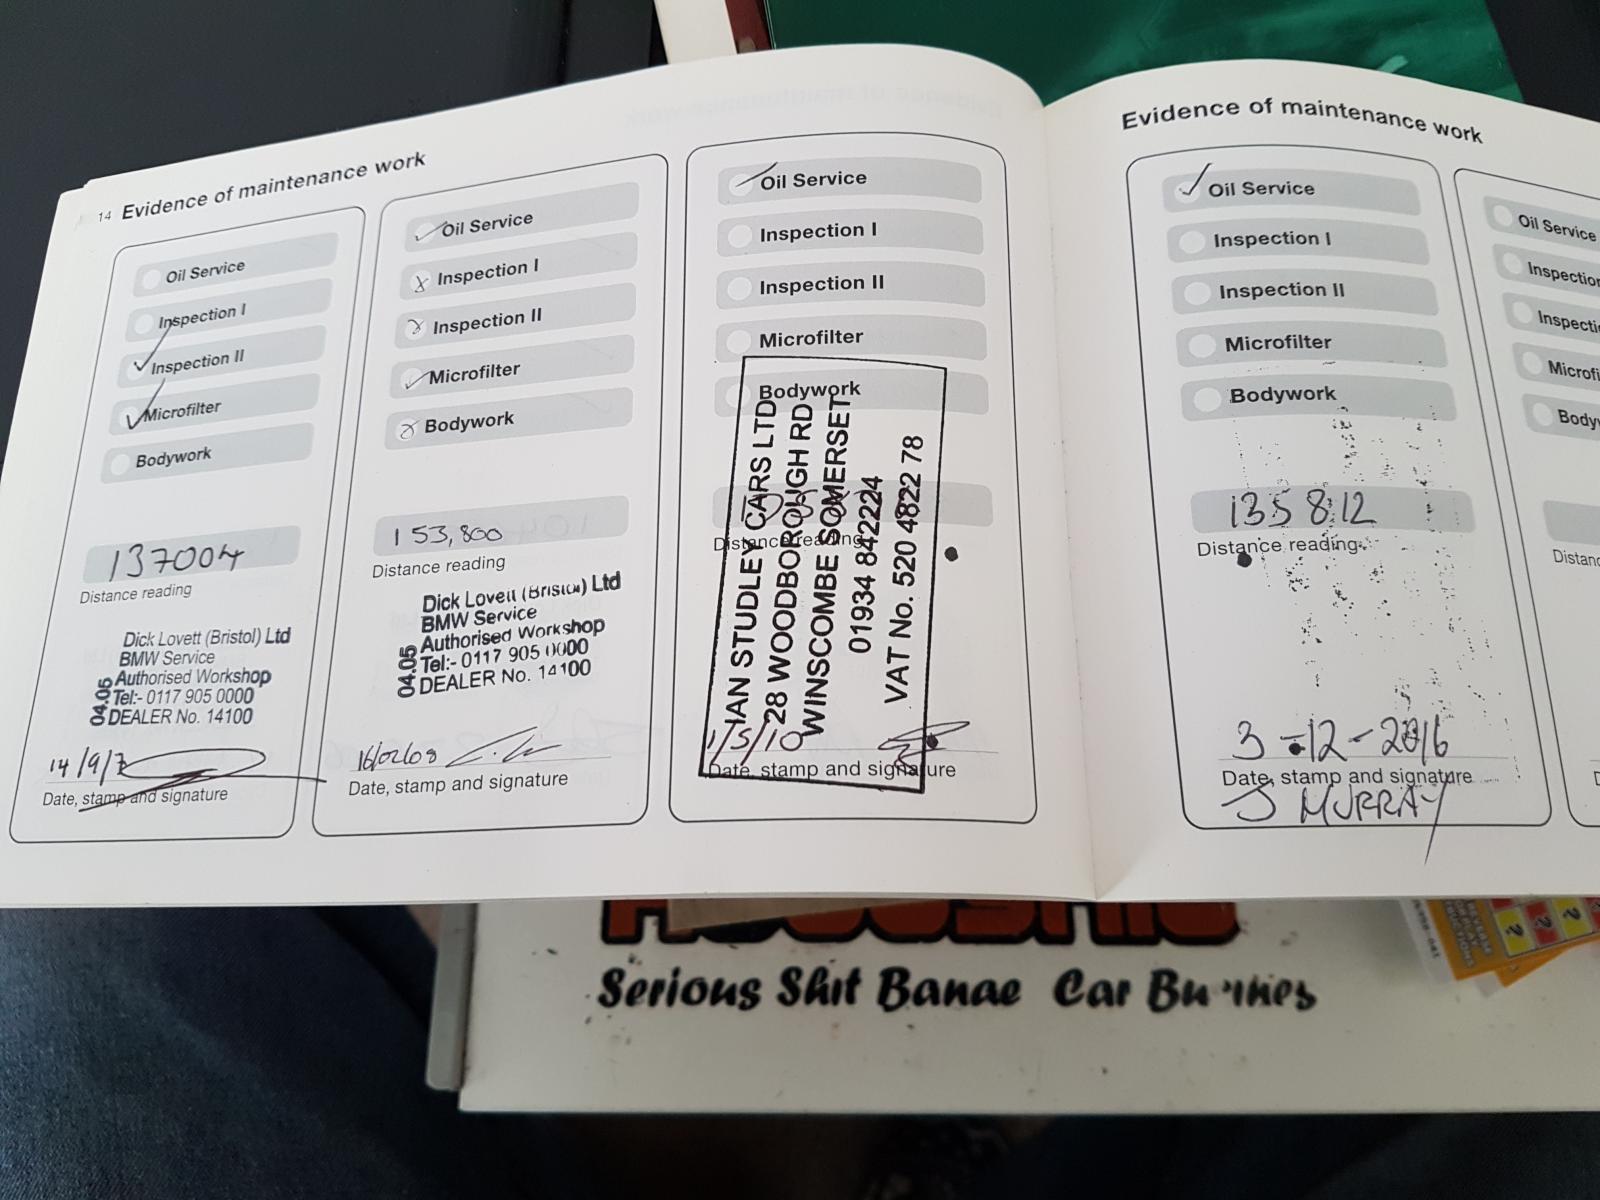 14 Evidence of maintenance work
Oil Service
Inspection I
Inspection II
Microfilter
Bodywork
137004
Distance reading
Dick Lovett (Bristol) Ltd
BMW Service
Authorised Workshop
Tel:- 0117 905 0000
DEALER No. 14100
04.05
14/9/7
Date, stamp and signature
Oil Service
Inspection I
Inspection II
Microfilter
Bodywork
153,800
Distance reading
Dick Lovett (Bristol) Ltd
BMW Service
Authorised Workshop
Tel:- 0117 905 0000
DEALER No. 14100
04.05
16/02/09
Date, stamp and signature
Oil Service
Inspection I
Inspection II
Microfilter
Bodywork
Distance reading
IAN STUDLEY CARS LTD
28 WOODBOROUGH RD
WINSCOMBE SOMERSET
01934 842224
VAT No. 520 4822 78
1/5/10
Date, stamp and signature
Evidence of maintenance work
Oil Service
Inspection I
Inspection II
Microfilter
Bodywork
135812
Distance reading
3-12-2016
Date, stamp and signature
J MURRAY
Oil Service
Inspection
Inspecti
Microfi
Body
Distanc
Serious Shit Banae Car Bu